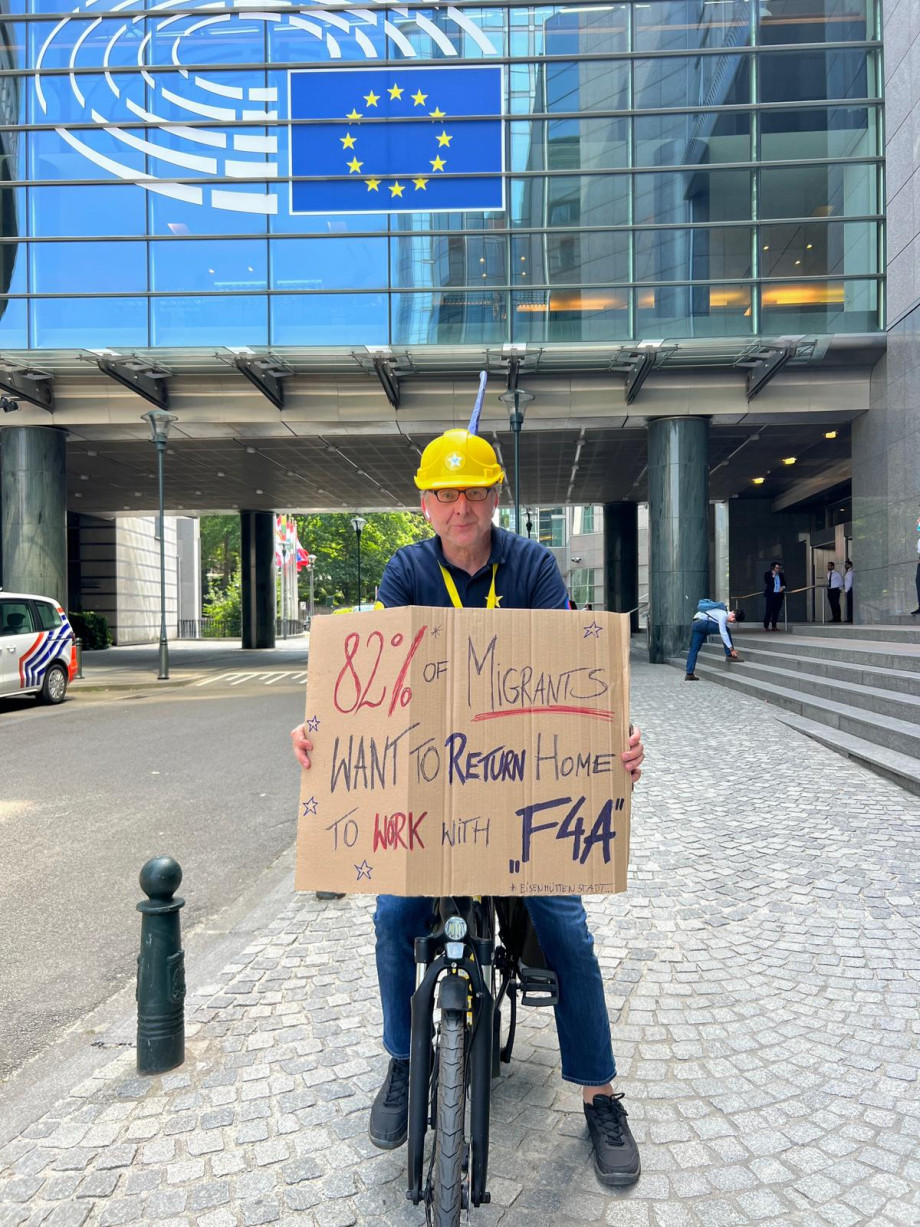 82%* OF MIGRANTS
WANT TO RETURN HOME
TO WORK WITH „F4A"
* EISENHÜTTENSTADT...